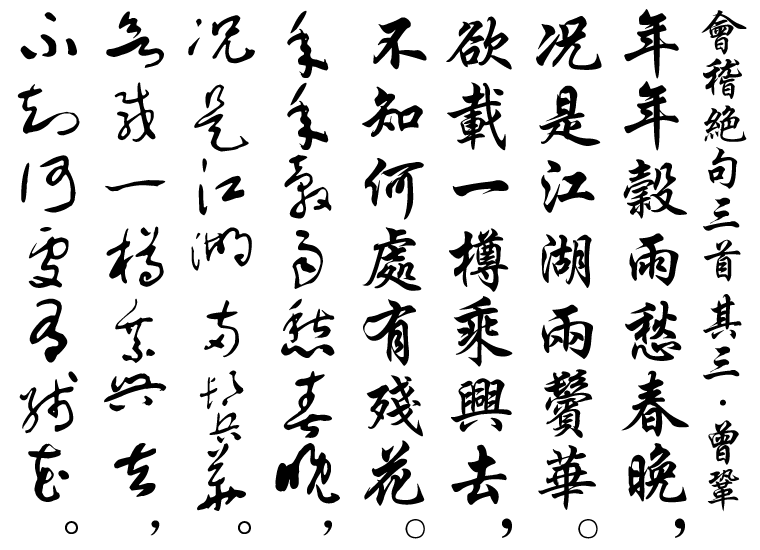 會稽絕句三首其三·曾鞏
年年穀雨愁春晚，
况是江湖兩鬢華。
欲載一樽乘興去，
不知何處有殘花。
年年穀雨愁春晚，
况是江湖兩鬢華。
欲載一樽乘興去，
不知何處有殘花。